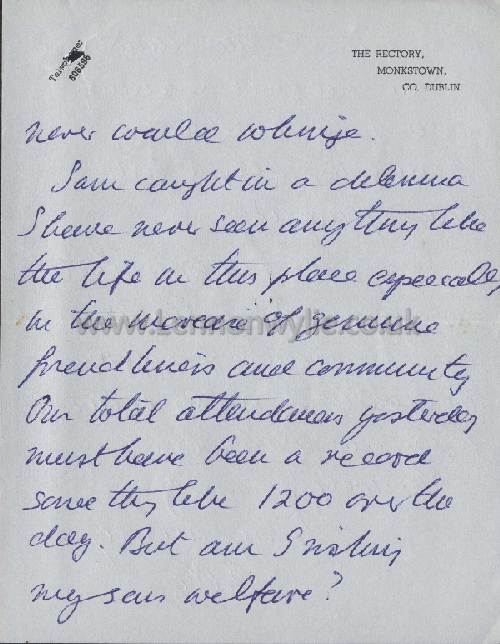 THE RECTORY,
MONKSTOWN,
CO. DUBLIN
Telephone:
never would whinge.
I am caught in a delemma
I have never seen anything like
the life in this place especially
in the increase of genuine
friendliness and community
Our total attendances yesterday
must have been a record
something like 1200 over the
day. But am I risking
my sons welfare?
www.lennonwylie.co.uk